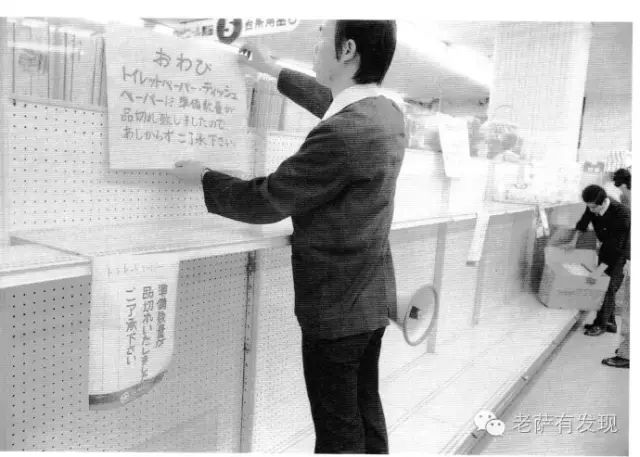 5 台所用品
おわび
トイレットペーパー・ティッシュ
ペーパーは準備数量が
品切れ致しましたので
あしからずご了承下さい
トイレットペーパー
準備数量が
品切れいたしました
ご了承下さい
老萨有发现